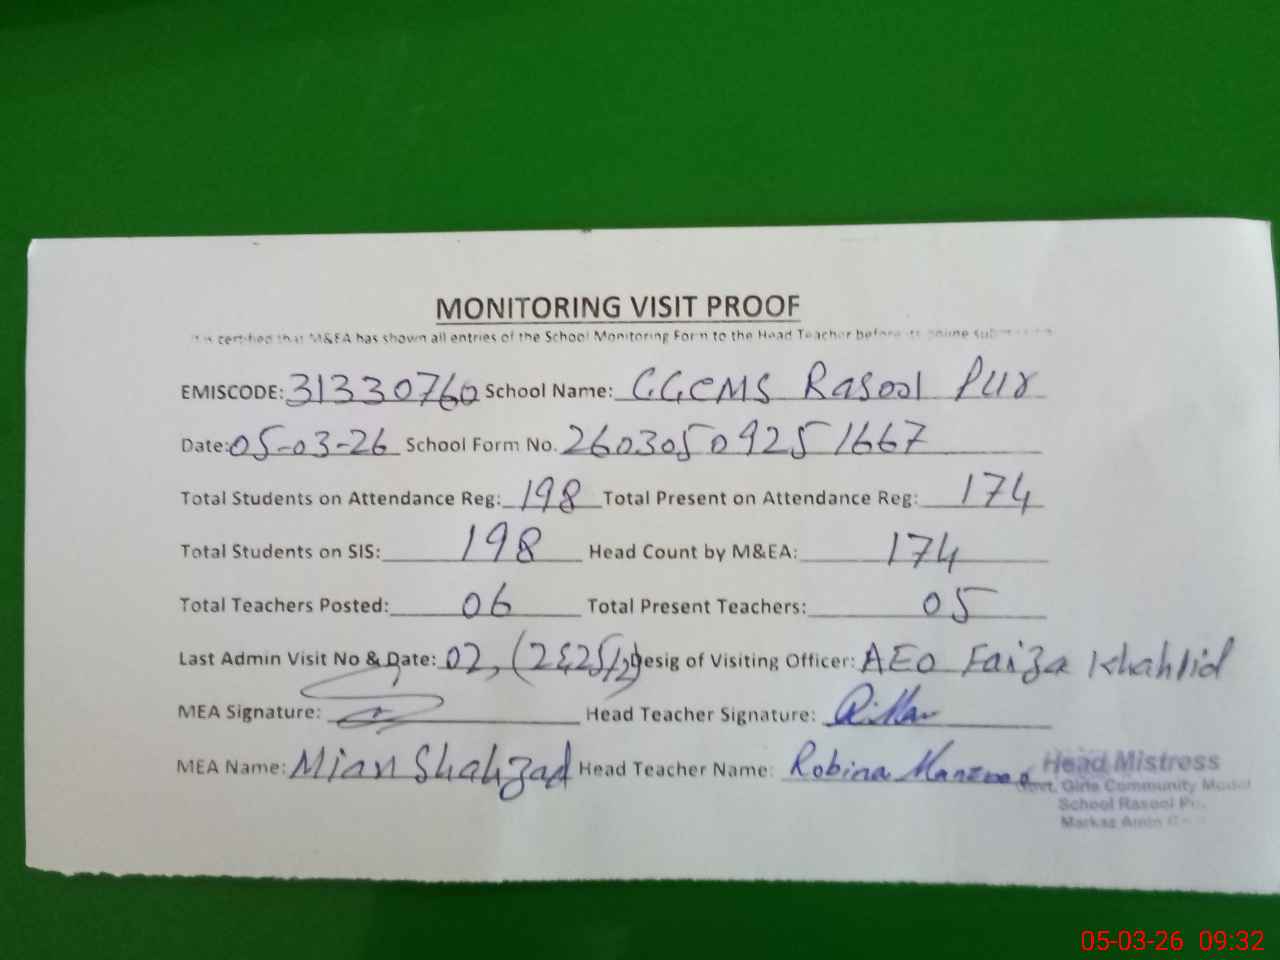 MONITORING VISIT PROOF
It is certified that M&EA has shown all entries of the School Monitoring Form to the Head Teacher before its online submission
EMISCODE: 31330760 School Name: GGCMS Rasool Pur
Date: 05-03-26 School Form No. 2603050925 1667
Total Students on Attendance Reg: 198 Total Present on Attendance Reg: 174
Total Students on SIS: 198 Head Count by M&EA: 174
Total Teachers Posted: 06 Total Present Teachers: 05
Last Admin Visit No & Date: 02, Desig of Visiting Officer: AEO Faiza Khahlid
MEA Signature: Head Teacher Signature:
MEA Name: Mian Shahzad Head Teacher Name: Robina Manzoor
Head Mistress
Govt. Girls Community Model
School Rasool
Markaz Amin
05-03-26 09:32